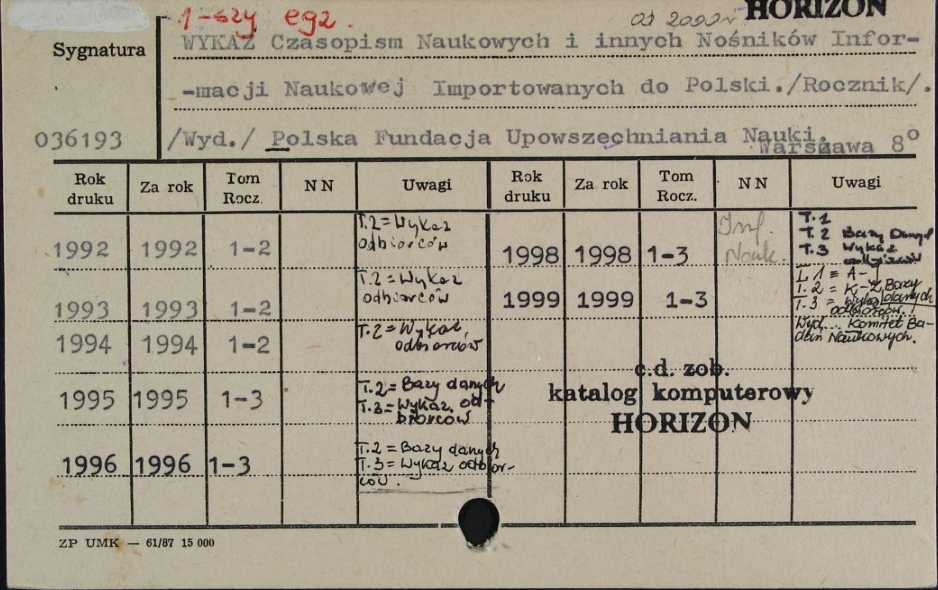 1-szy egz. od 2000r HORIZON
Sygnatura
WYKAZ Czasopism Naukowych i innych Nośników Infor-
-macji Naukowej Importowanych do Polski./Rocznik/.
036193 /Wyd./ Polska Fundacja Upowszechniania Nauki.
Warszawa 8°
Rok druku Za rok Tom Rocz. NN Uwagi Rok druku Za rok Tom Rocz. NN Uwagi
1992 1992 1-2 T.2 = Wykaz
odbiorców
1993 1993 1-2 T.2 = Wykaz
odbiorców
1994 1994 1-2 T.2 = Wykaz
odbiorców
1995 1995 1-3 T.2 = Bazy danych
T.3 = Wykaz od-
biorców
1996 1996 1-3 T.2 = Bazy danych
T.3 = Wykaz odbior-
ców.
1998 1998 1-3 Inf.
Nauk.
T.1
T.2 Bazy Danych
T.3 Wykaz
odbiorców
1999 1999 1-3 T.1 = A-J
T.2 = K-Z, Bazy danych
T.3 = Wykaz
odbiorców.
Wyd. Komitet Ba-
dań Naukowych.
c.d. zob.
katalog komputerowy
HORIZON
ZP UMK — 61/87 15 000